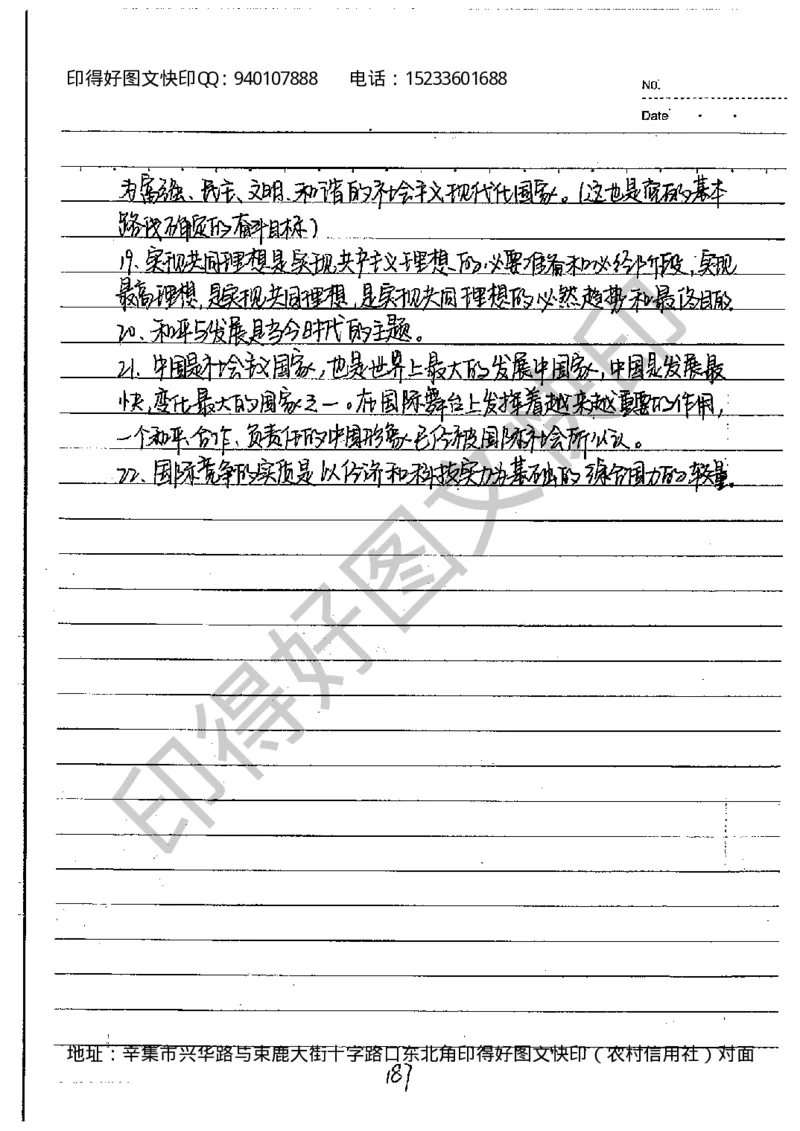 印得好图文快印QQ：940107888 电话：15233601688
No.
Date
为富强、民主、文明、和谐的社会主义现代化国家。（这也是党的基本
路线确定的奋斗目标）
19、实现共同理想是实现共产主义理想的必要准备和必经阶段，实现
最高理想，是实现共同理想，是实现共同理想的必然趋势和最终目的
20、和平与发展是当今时代的主题。
21、中国是社会主义国家，也是世界上最大的发展中国家，中国是发展最
快，变化最大的国家之一。在国际舞台上发挥着越来越重要的作用，
一个和平、合作、负责任的中国形象已经被国际社会所公认。
22、国际竞争的实质是以经济和科技实力为基础的综合国力的较量。
印得好图文快印
地址：辛集市兴华路与束鹿大街十字路口东北角印得好图文快印（农村信用社）对面
187